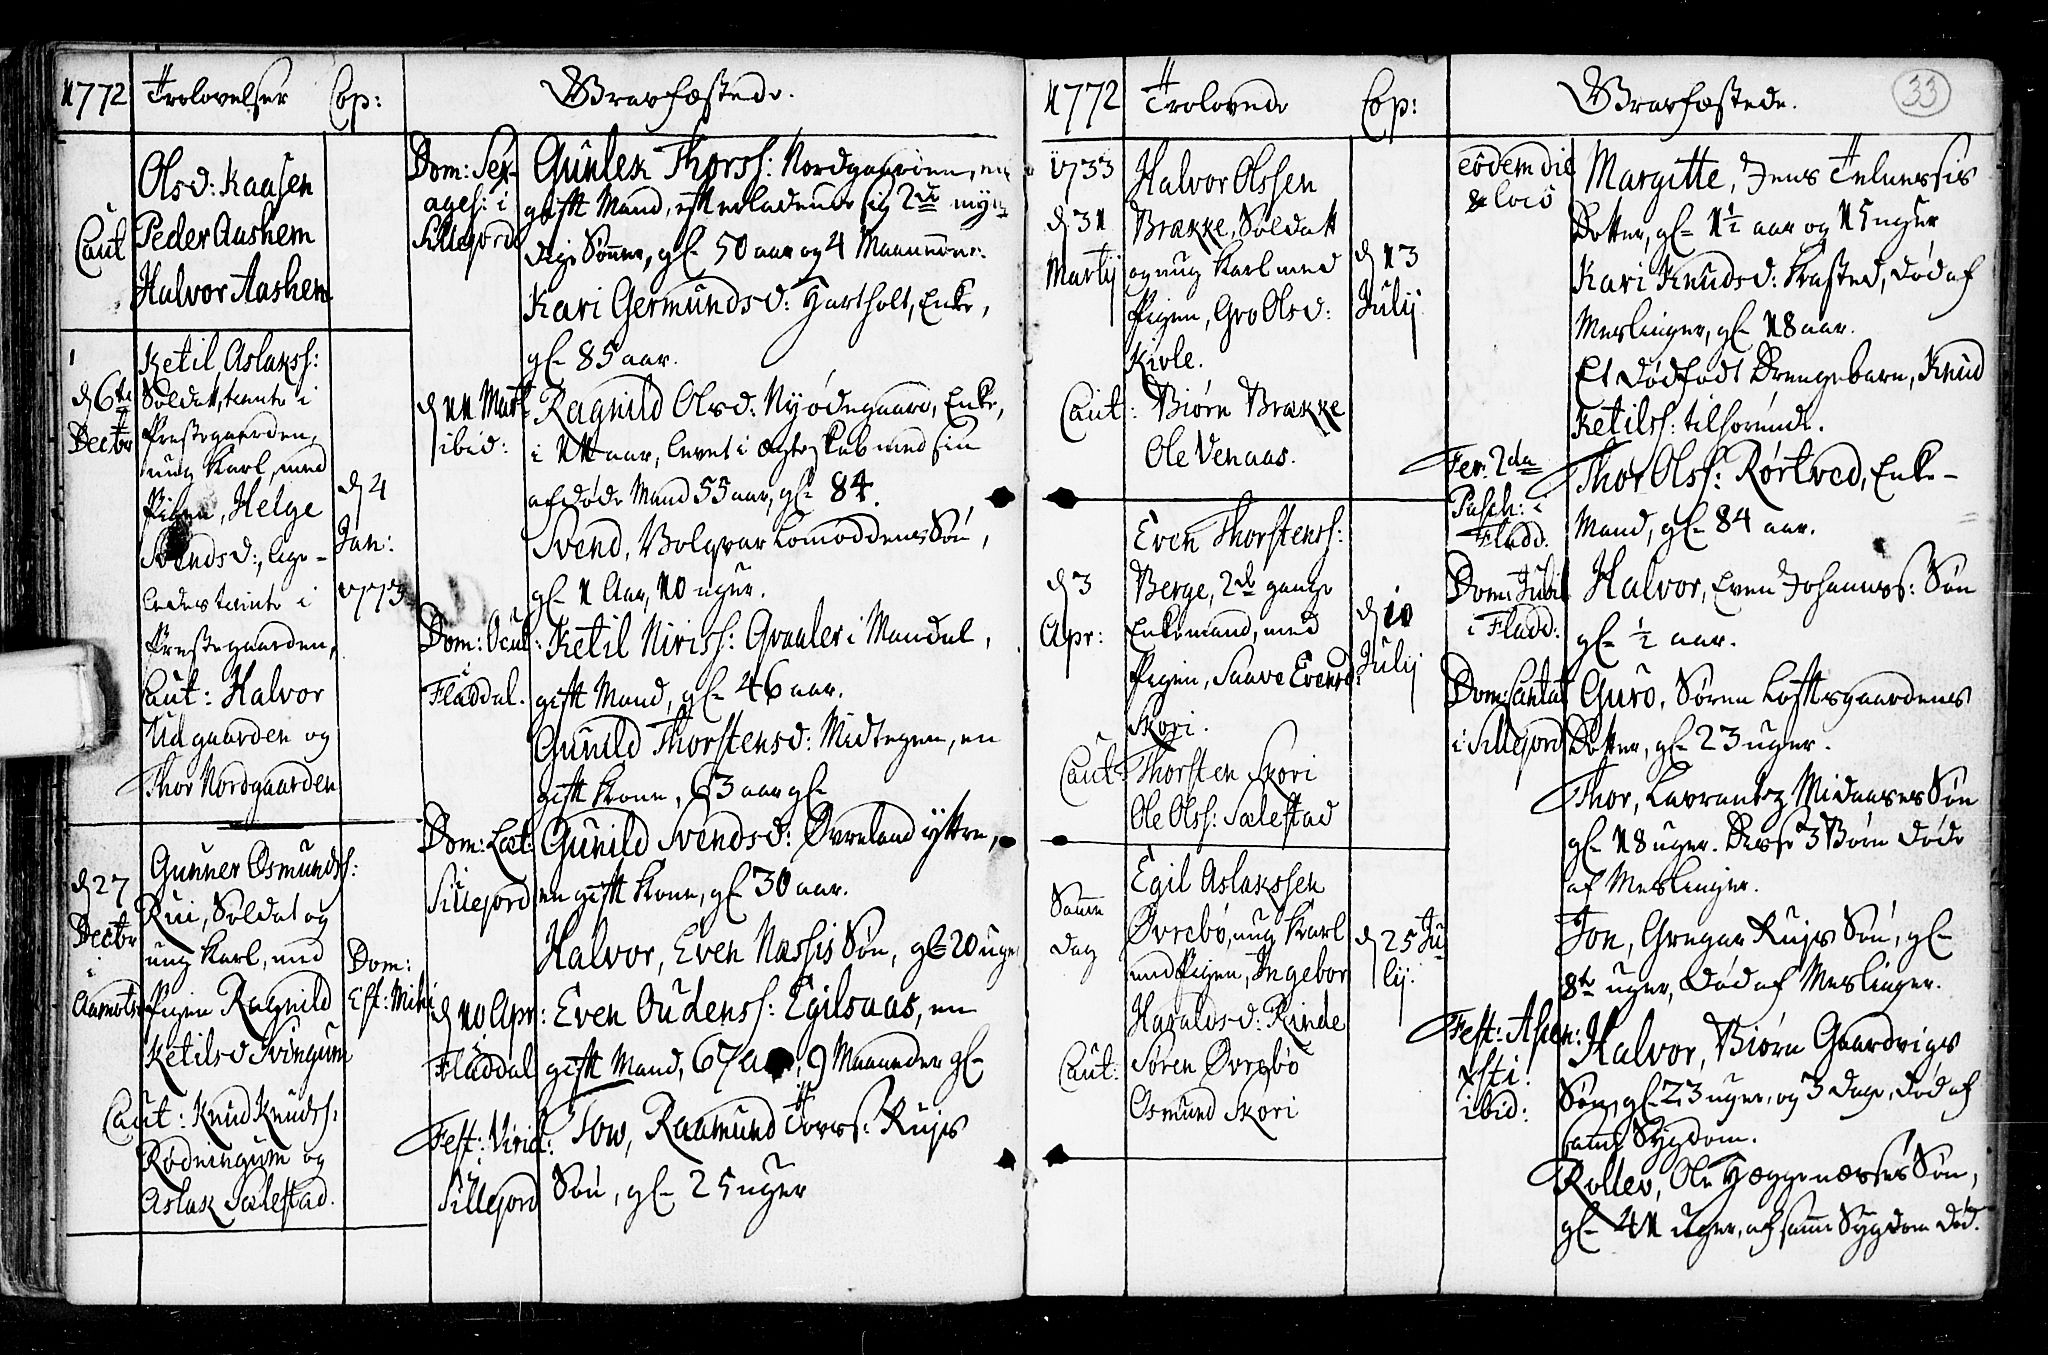 1772
Trolovelser
Cop:
Gravfæstede.
Olsd: Kaasen
Caut Peder Aashem
Halvor Aashem
d 6te
Decbr
Ketil Aslakss:
Soldat, tiente i
Præstegaarden,
ung Karl, med
Pigen, Helge
Svendsd:, lige-
ledes tiente i
Præstegaarden,
Caut: Halvor
Udgaarden og
Thor Nordgaarden
d 4
Jan:
1773
d 27
Decbr
i
Gunner Osmunds:
Rui, Soldat og
ung Karl, med
Pigen Ragnild
Ketilsd Svingum
Caut: Knud Knuds:
Rødningum og
Aslak Sælestad.
Dom:
Dom: Sex-
ages: i
Sillejord
Gunlek Thorss: Nordgaarden, en
gift Mand, efterladende sig 2de myn-
dige Sønner, gl- 50 aar og 4 Maaneder.
Kari Germundsd: Hartholt, Enke,
gl- 85 aar.
d 11 Mart
ibid:
Ragnild Olsd: Nyødegaard, Enke,
i 11 aar, levet i Ægteskab med sin
afdøde Mand 55 aar, gl- 84.
Svend, Bolqvar Lomoddens Søn,
gl- 1 Aar, 10 uger.
Dom: Ocul:
i
Fladdal.
Ketil Niriss: Qvaaler i Mandal,
gift Mand, gl- 46 aar.
Gunild Thorstensd: Midtegen, en
gift Kone, 63 aar gl-
Dom: Læt:
i
Sillejord
Gunild Svendsd: Øvreland yttre,
en gift Kone, gl- 30 aar.
Halvor, Even Næssis Søn, gl- 20 uge
d 10 Apr:
i
Fladdal
Even Oudenss: Egilsaas, en
gift Mand, 67 9 Maaneder gl-
Fest: Virid:
i
Sillejord
Tov, Raamund Tovss: Rujs
Søn, gl- 25 uger
1772
Trolovede
Cop:
Gravfæstede.
33
1733
d 31
Martij
Halvor Olssen
Brække, Soldat
og ung Karl med
Pigen, Gro Olsd:
Kivle.
Caut: Biørn Brække
Ole Venaas.
d 13
Julij
d 3
Apr:
Even Thorstenss:
Berge, 2de gange
Enkemand, med
Pigen, Saave Evensd
Skori.
Caut: Thorsten Skori
Ole Olss: Sælestad
d 10
Julij
Samme
dag
Egil Aslakssen
Øvrebø, ung Karl
med Pigen, Ingebor
Haraldsd: Rinde
Caut: Søren Øvrebø
Osmund Skori
d 25 Ju
lij:
eodem die
& loco
Margitte, Jens Telnessis
Dotter, gl- 1 1/2 aar og 15 uger
Kari Knudsd: Krasted, død af
Meslinger, gl- 18 aar.
Et dødfødt Drengebarn, Knud
Ketilss: tilhørende.
Fer. 2da
Pasch: i
Fladd:
Thor Olss: Rørtved, Enke-
Mand, gl- 84 aar.
Dom: Jubil
i Fladd:
Halvor, Even Johannss: Søn
gl- 1/2 aar.
Dom: Cantat
i Sillejord
Guro, Søren Loftsgaardens
Dotter, gl- 23 uger.
Thor, Lavrantz Midaases Søn
gl- 18 uger. Disse 3 Børn døde
af Meslinger.
Jon, Gregar Rujs Søn, gl-
8te uger, død af Meslinger.
Fest: Ascen:
Xsti:
ibid:
Halvor, Biørn Gaardvigs
Søn, gl- 23 uger, og 3 Dage, død af
samme Sygdom.
Rollev, Ole Hæggenæsses Søn,
gl- 41 uger, af samme Sygdom død.